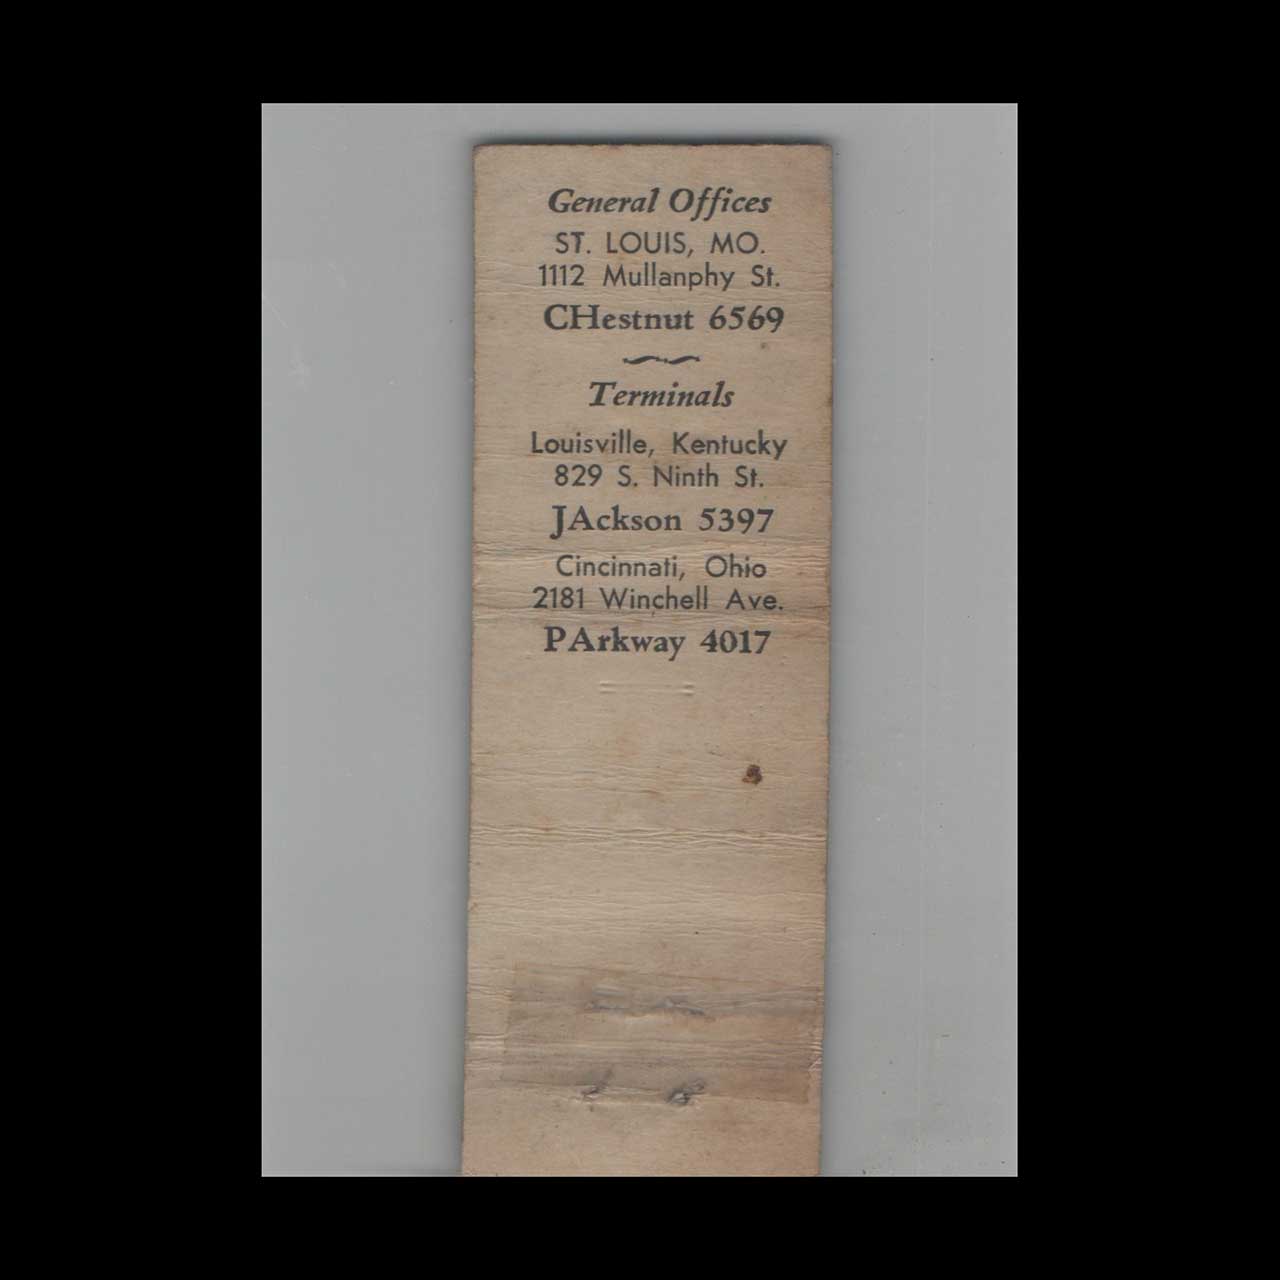 General Offices
ST. LOUIS, MO.
1112 Mullanphy St.
CHestnut 6569
Terminals
Louisville, Kentucky
829 S. Ninth St.
JAckson 5397
Cincinnati, Ohio
2181 Winchell Ave.
PArkway 4017